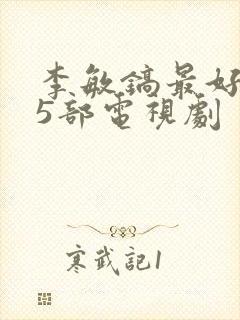 李敏鎬最好
5部電視劇
寒武記1